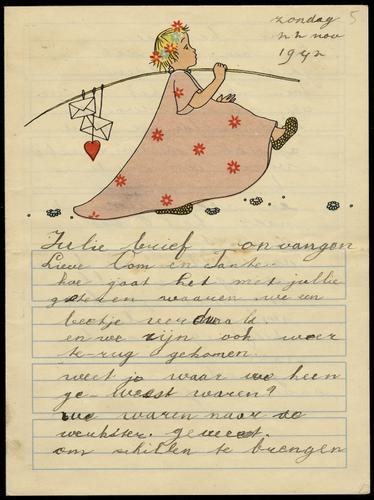 zondag 5
22 nov
1942
Julie brief onvangen
Lieve Oom en Tante
hoe gaat het met jullie
gisteren waaren we un
beetje verdwaalt.
en we zijn ook weer
te-rug gekomen.
weet je waar we heen
ge-weest waren?
we waren naar de
werkster. geweest.
om schillen te brengen